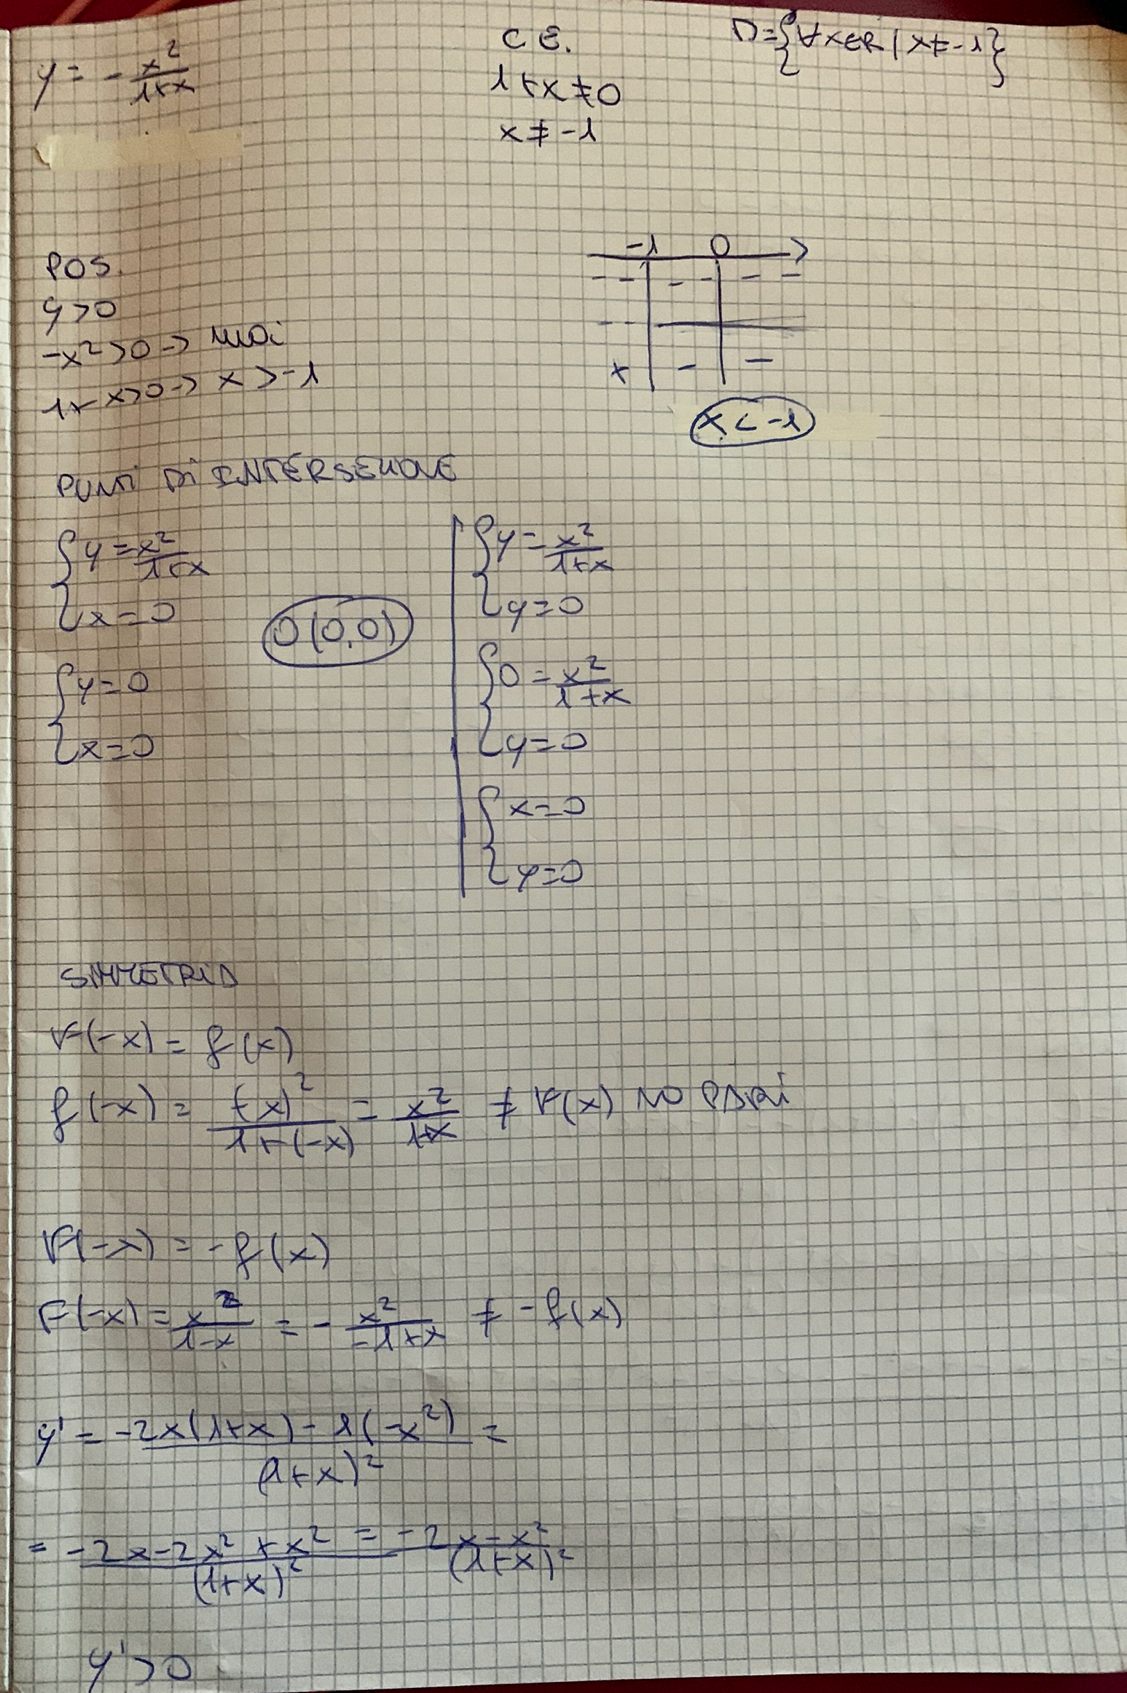 y = - x²/(1+x)
C.E.
1+x≠0
x≠-1
D={∀x∈R | x≠-1}
POS.
y>0
-x²>0 -> mai
1+x>0 -> x>-1
-1 0
- - - - - -
- -
+ - -
x<-1
PUNTI DI INTERSEZIONE
{y = -x²/(1+x)
{x=0
{y=0
{x=0
O(0,0)
{y = -x²/(1+x)
{y=0
{0 = -x²/(1+x)
{y=0
{x=0
{y=0
SIMMETRIA
F(-x) = f(x)
f(-x) = (-x)²/(1+(-x)) = x²/(1-x) ≠ F(x) NO PARI
F(-x) = -f(x)
F(-x) = x²/(1-x) = - x²/(-1+x) ≠ -f(x)
y' = (-2x(1+x) - 1(-x²))/(1+x)² =
= (-2x-2x²+x²)/(1+x)² = (-2x-x²)/(1+x)²
y'>0